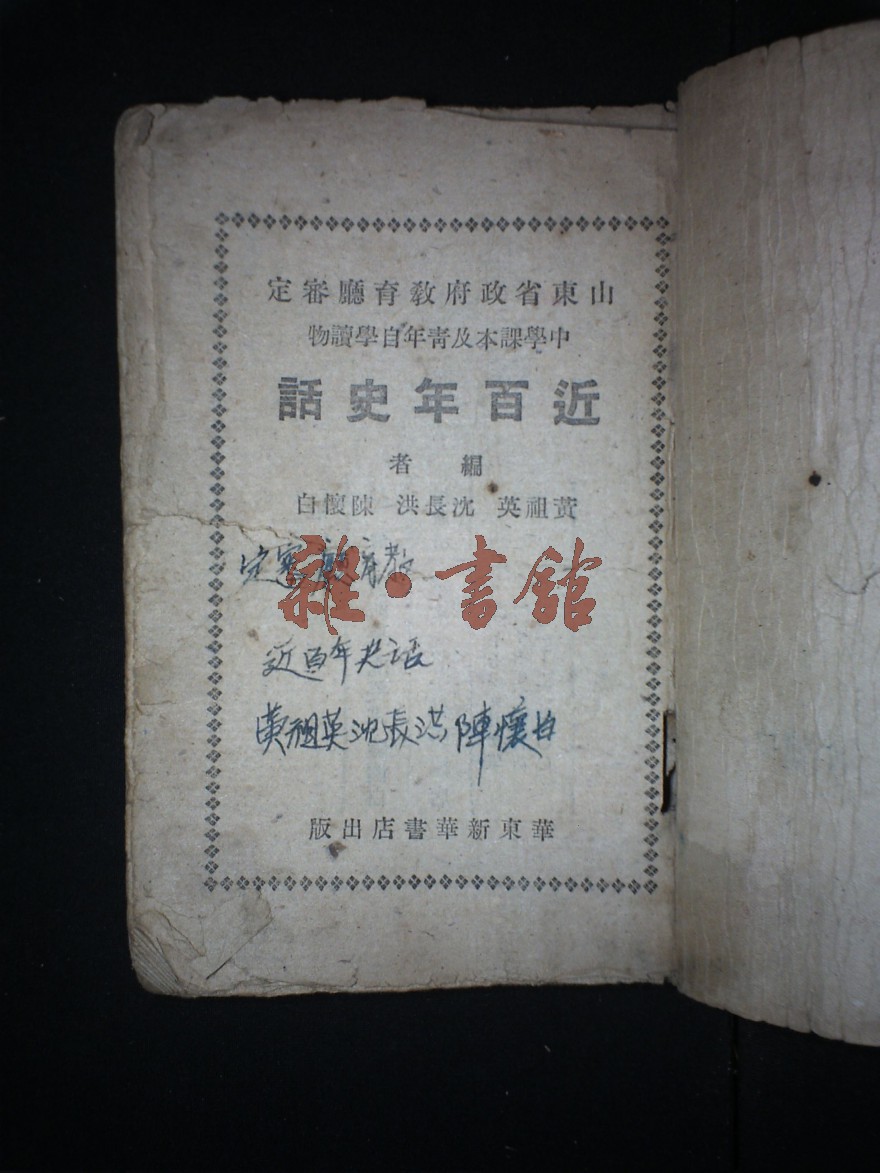 山東省政府教育廳審定
中學課本及青年自學讀物
近百年史話
編者
黃祖英 沈長洪 陳懷白
教育廳審定
雜·書館
近百年史话
黄祖英沈長洪陳懷白
華東新華書店出版